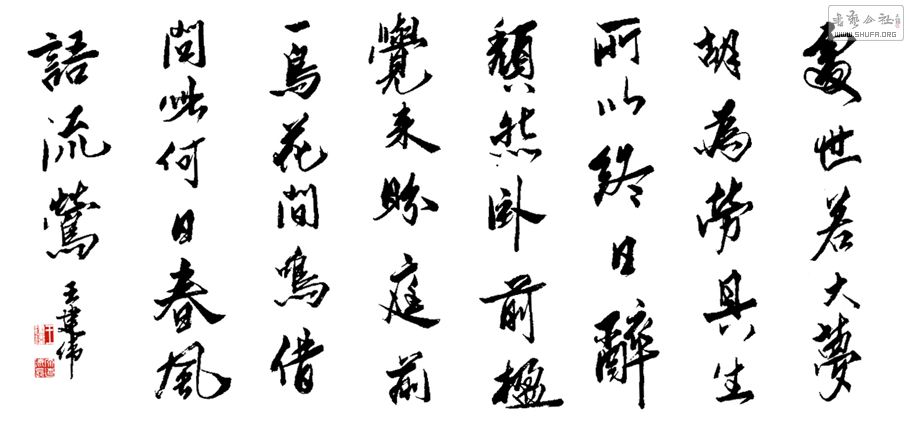 書藝公社
WWW.SHUFA.ORG
處世若大夢
胡為勞其生
所以終日醉
頹然卧前楹
覺來盼庭前
一鳥花間鳴借
問此何日春風
語流鶯
王建伟